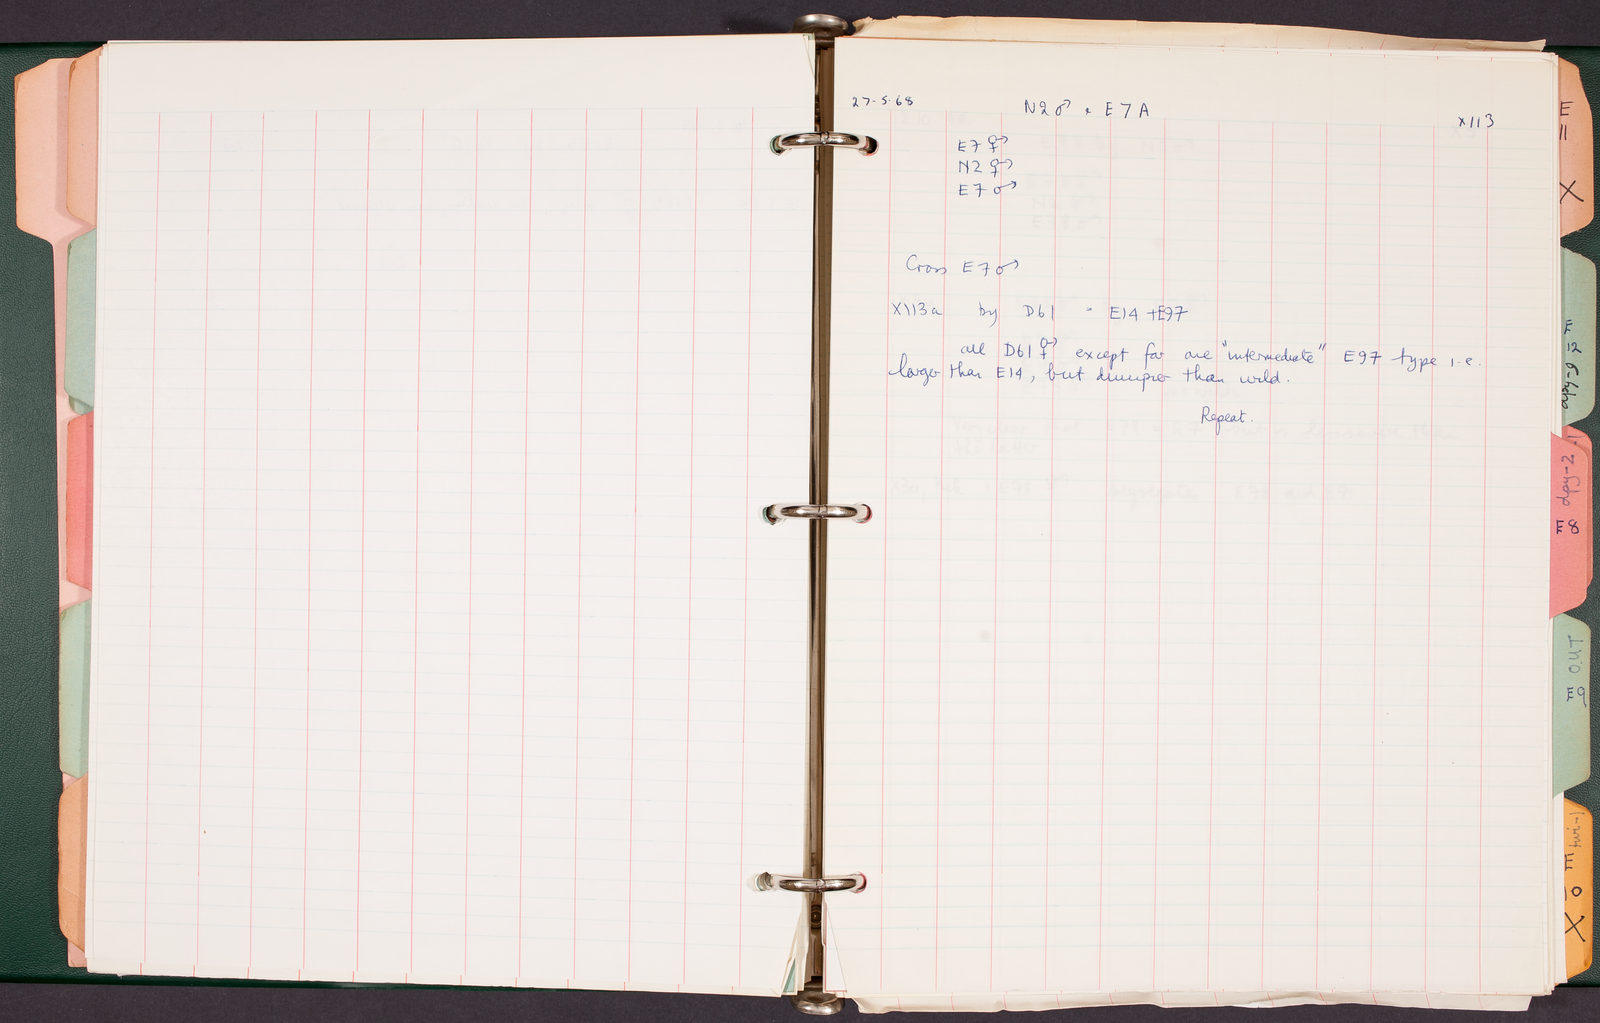 27-5-68
N2 ♂ × E7A
X113
E7 ⚥
N2 ⚥
E7 ♂
Cross E7 ♂
X113a by D61 - E14 + E97
all D61 ⚥ except for one "intermediate" E97 type i.e.
larger than E14, but dumpier than wild.
Repeat.
E
11
X
E
12
dpy-9
dpy-2
E8
OUT
E9
twi-1
E
10
X